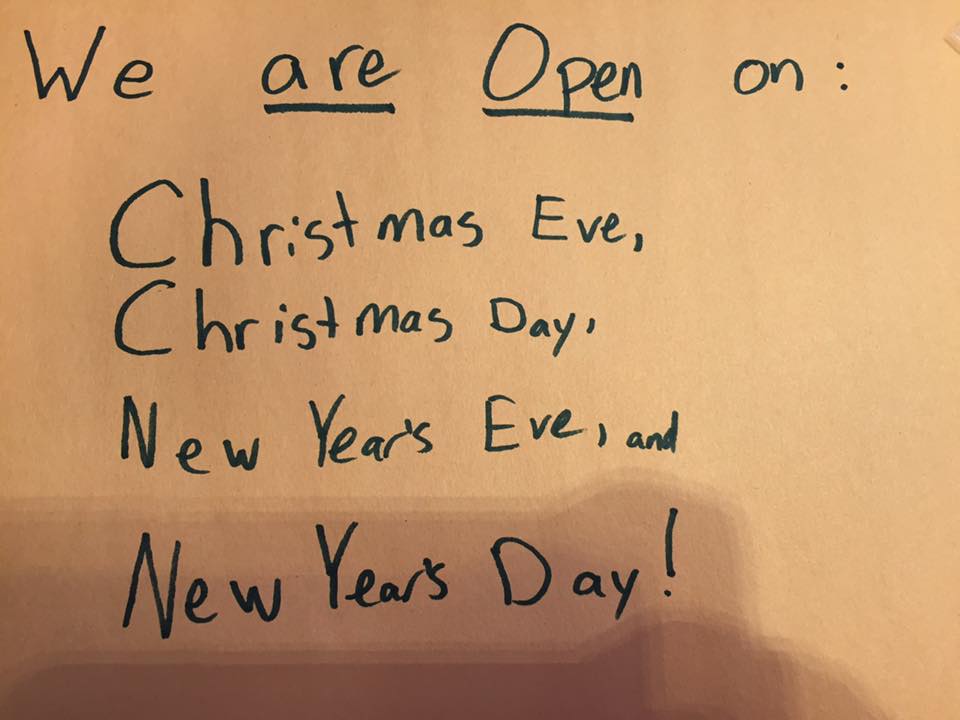 We are Open on:
Christmas Eve,
Christmas Day,
New Year's Eve, and
New Year's Day!